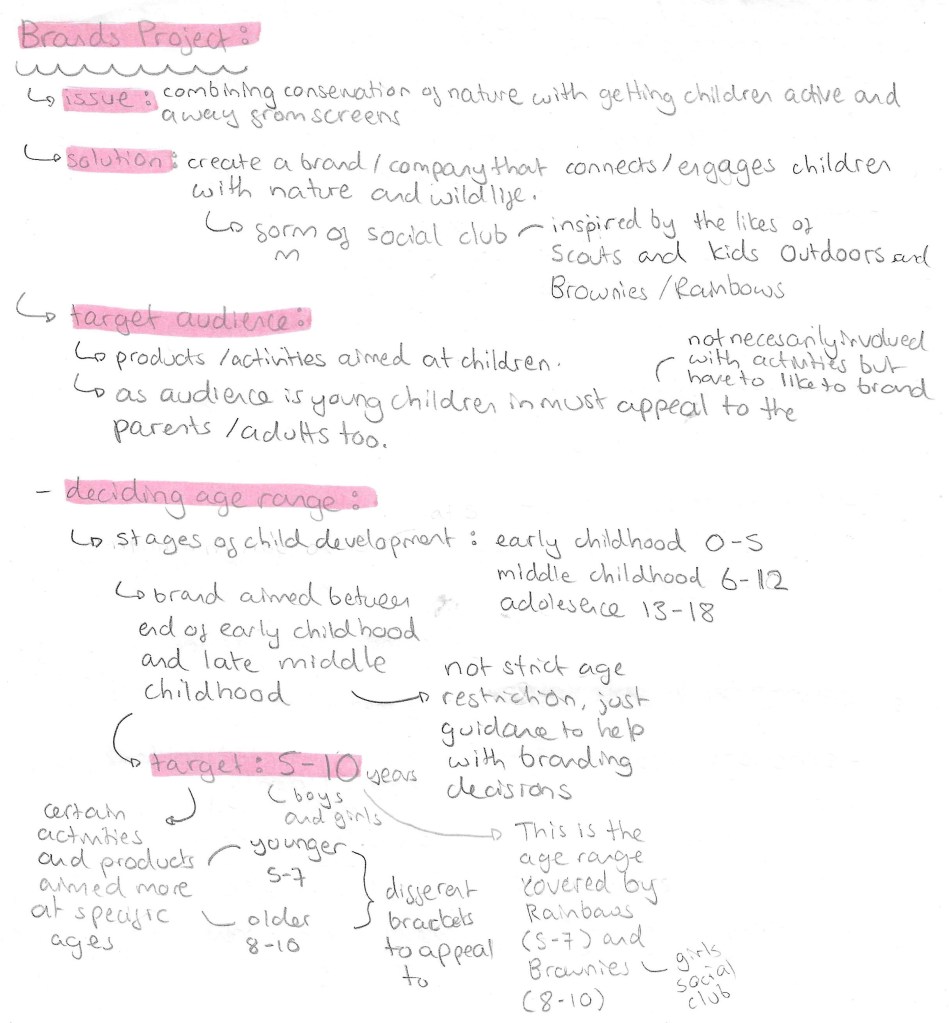 Brands Project:
issue: combining conservation of nature with getting children active and
away from screens
solution: create a brand/company that connects/engages children
with nature and wildlife.
form of social club
inspired by the likes of
Scouts and Kids Outdoors and
Brownies/Rainbows
target audience:
products/activities aimed at children.
not necesarily involved
with activities but
have to like to brand
as audience is young children in must appeal to the
parents/adults too.
- deciding age range:
stages of child development: early childhood 0-5
middle childhood 6-12
adolesence 13-18
brand aimed between
end of early childhood
and late middle
childhood
not strict age
restriction, just
guidance to help
with branding
decisions
target: 5-10 years
boys
and girls
certain
activities
and products
aimed more
at specific
ages
younger
5-7
older
8-10
different
brackets
to appeal
to
This is the
age range
covered by
Rainbows
(5-7) and
Brownies
(8-10)
girls
social
club